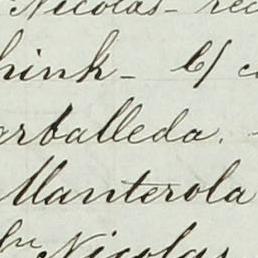 Nicolas - rec
hink - 6/ c
arballeda. -
Manterola
fn Nicolas